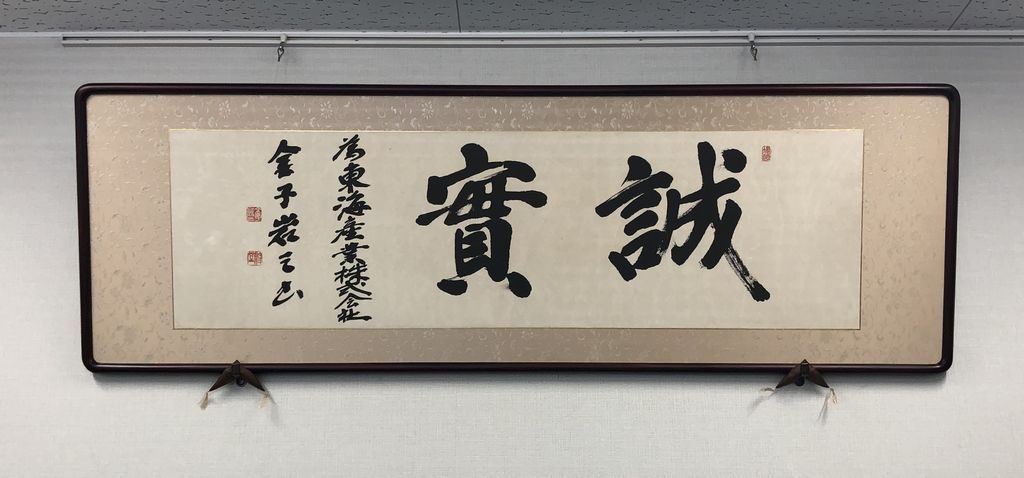 誠實
為東海産業株式会社
金子岩三書